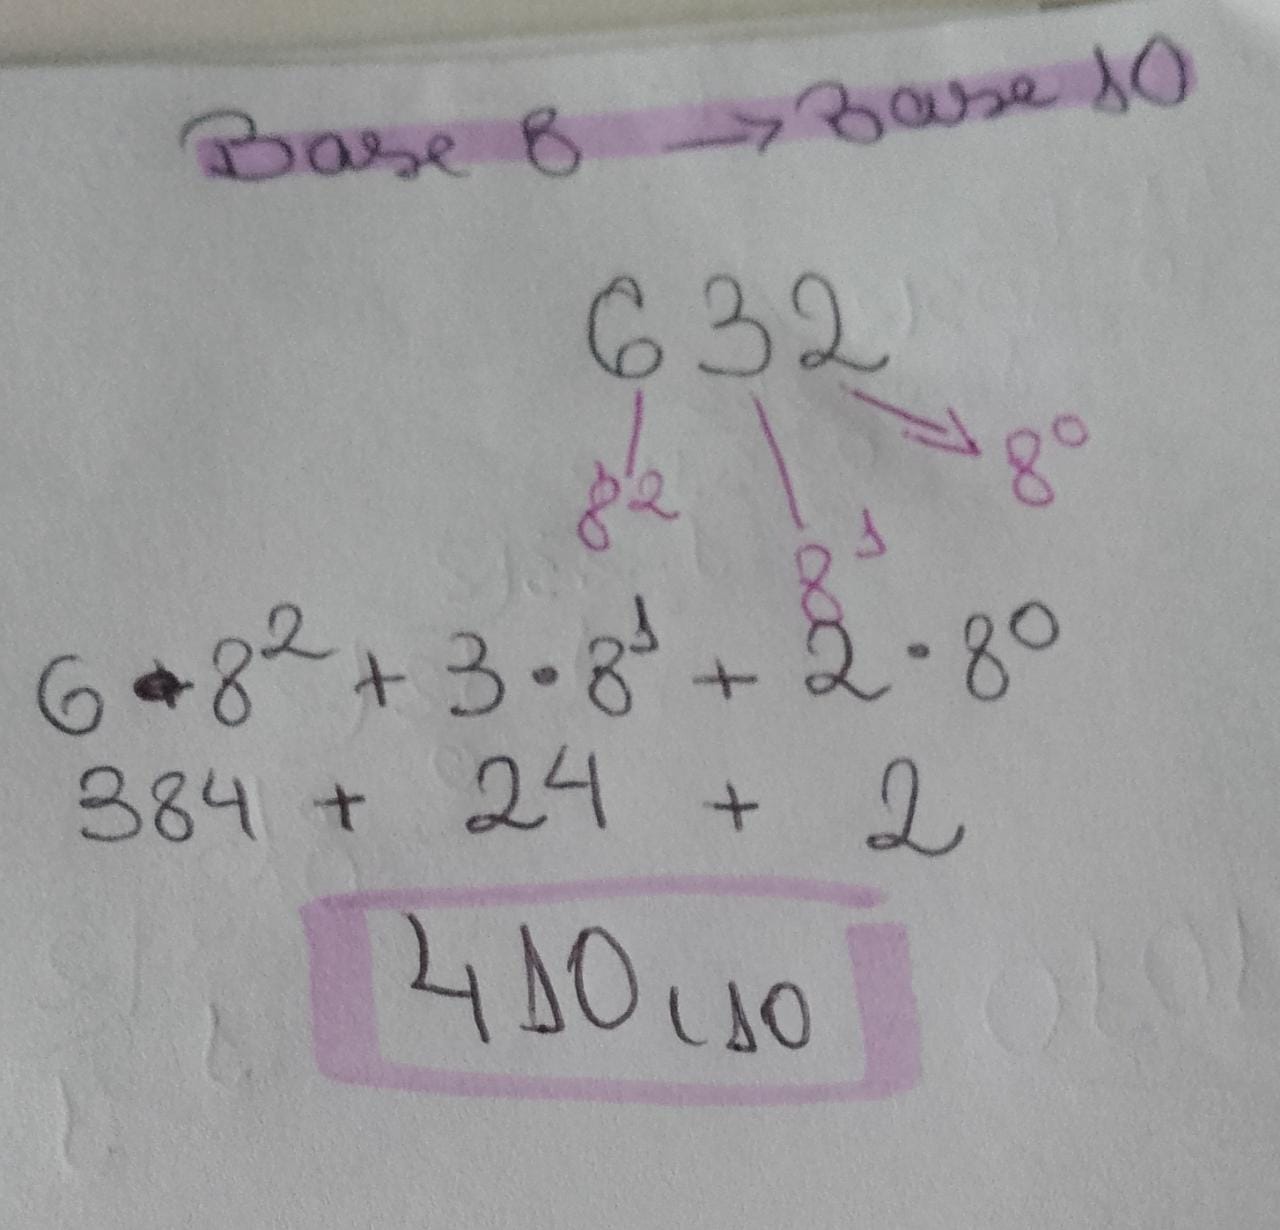 Base 8 → Base 10
632
8² 8¹ 8⁰
6 · 8² + 3 · 8¹ + 2 · 8⁰
384 + 24 + 2
410 (10